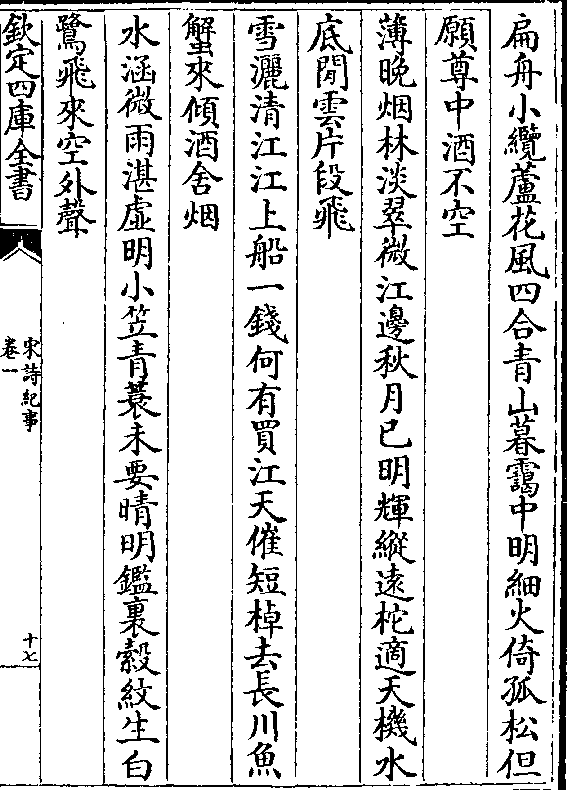 扁舟小纜蘆花風四合青山暮靄中明細火倚孤松但
願尊中酒不空
薄晚烟林淡翠微江邊秋月已明輝縱遠柁適天機水
底閒雲片段飛
雪灑清江江上船一錢何有買江天催短棹去長川魚
蟹來傾酒舍烟
水涵微雨湛虛明小笠青蓑未要晴明鑑裏縠紋生白
鷺飛來空外聲
欽定四庫全書
宋詩紀事
卷一
十七